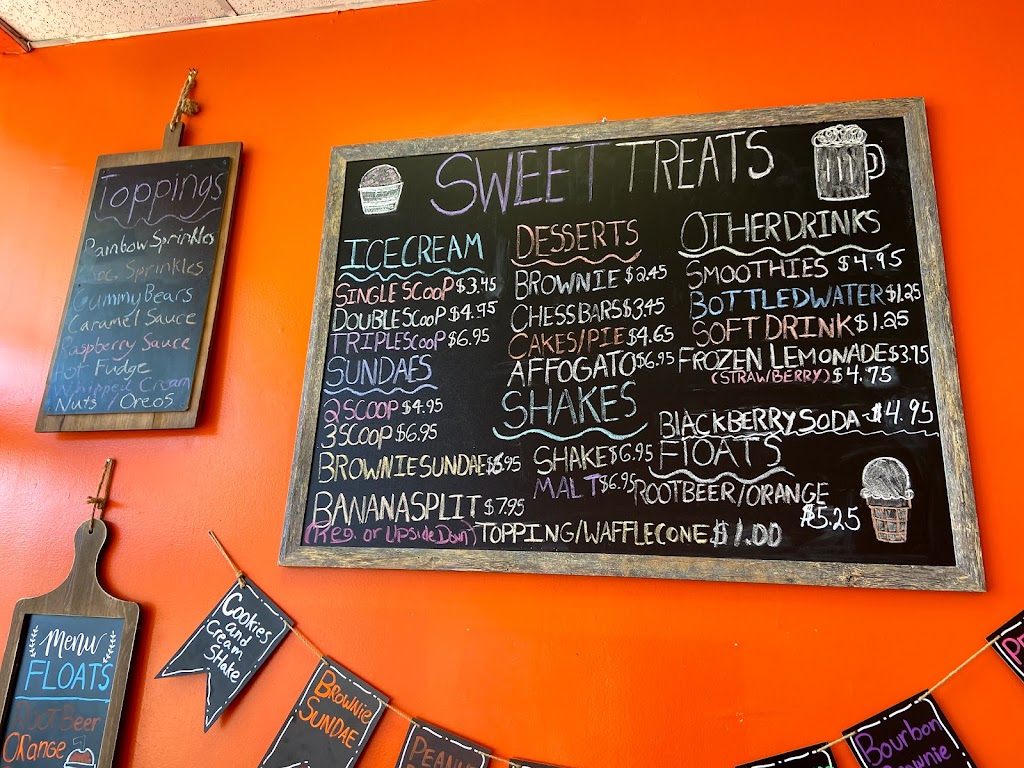 Toppings
Rainbow Sprinkles
Choc. Sprinkles
Gummy Bears
Caramel Sauce
Raspberry Sauce
Hot Fudge
Whipped Cream
Nuts / Oreos
SWEET TREATS
ICE CREAM
SINGLE SCOOP $3.45
DOUBLE SCOOP $4.95
TRIPLE SCOOP $6.95
SUNDAES
2 SCOOP $4.95
3 SCOOP $6.95
BROWNIE SUNDAE $6.95
BANANA SPLIT $7.95
(Reg. or Upside Down)
DESSERTS
BROWNIE $2.45
CHESS BARS $3.45
CAKES/PIE $4.65
AFFOGATO $6.95
SHAKES
SHAKE $6.95
MALT $6.95
TOPPING/WAFFLE CONE $1.00
OTHER DRINKS
SMOOTHIES $4.95
BOTTLED WATER $1.25
SOFT DRINK $1.25
FROZEN LEMONADE $3.75
(STRAWBERRY) $4.75
BLACKBERRY SODA - $4.95
FLOATS
ROOTBEER/ORANGE
$5.25
Menu
FLOATS
ROOT Beer
ORange
Cookies
and
Cream
Shake
Brownie
SUNDAE
Bourbon
Brownie